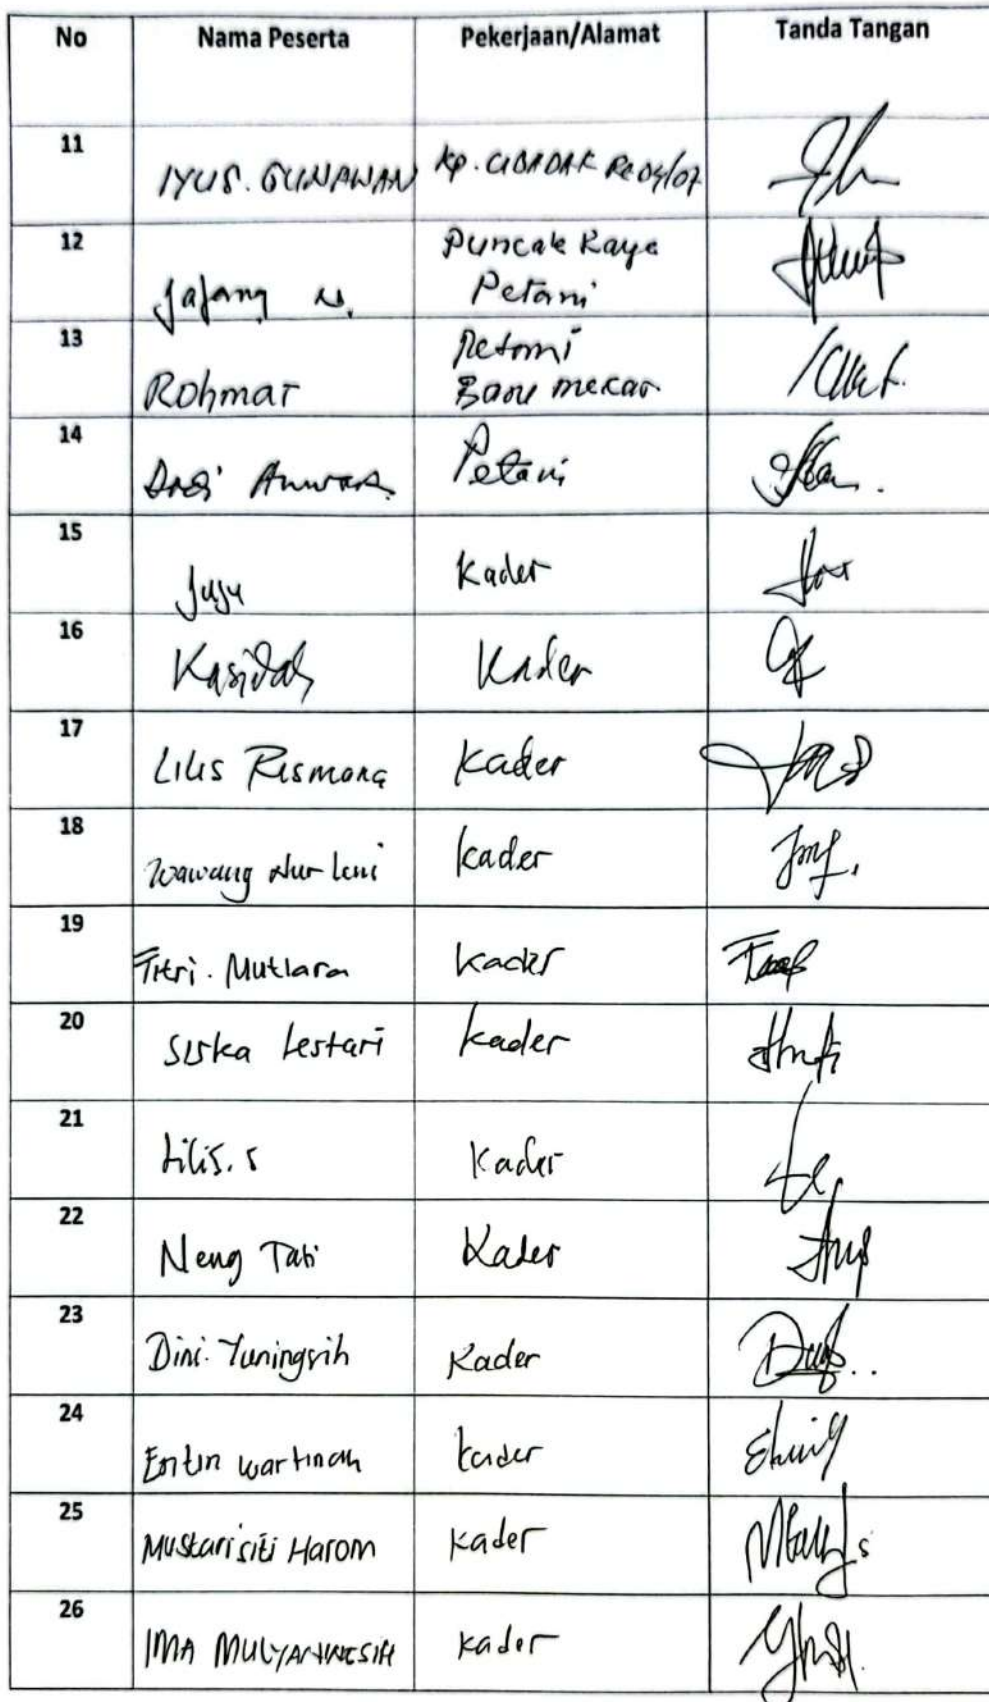 No Nama Peserta Pekerjaan/Alamat Tanda Tangan
11 IYUS. GUNAWAN Kp. CIBADAK
12 Jajang N. Puncak Raya
Petani
13 Rohmat Petani
Baru mekar
14 Anwar Petani
15 Juju Kader
16 Kasidah Kader
17 Lilis Rismana Kader
18 Wawang Nur Leni Kader
19 Fitri. Mutiara Kader
20 Siska Lestari Kader
21 Lilis. S Kader
22 Neng Tati Kader
23 Dini. Yuningsih Kader
24 Entin Wartinah Kader
25 Mustari siti Harom Kader
26 IMA MULYANINGSIH Kader